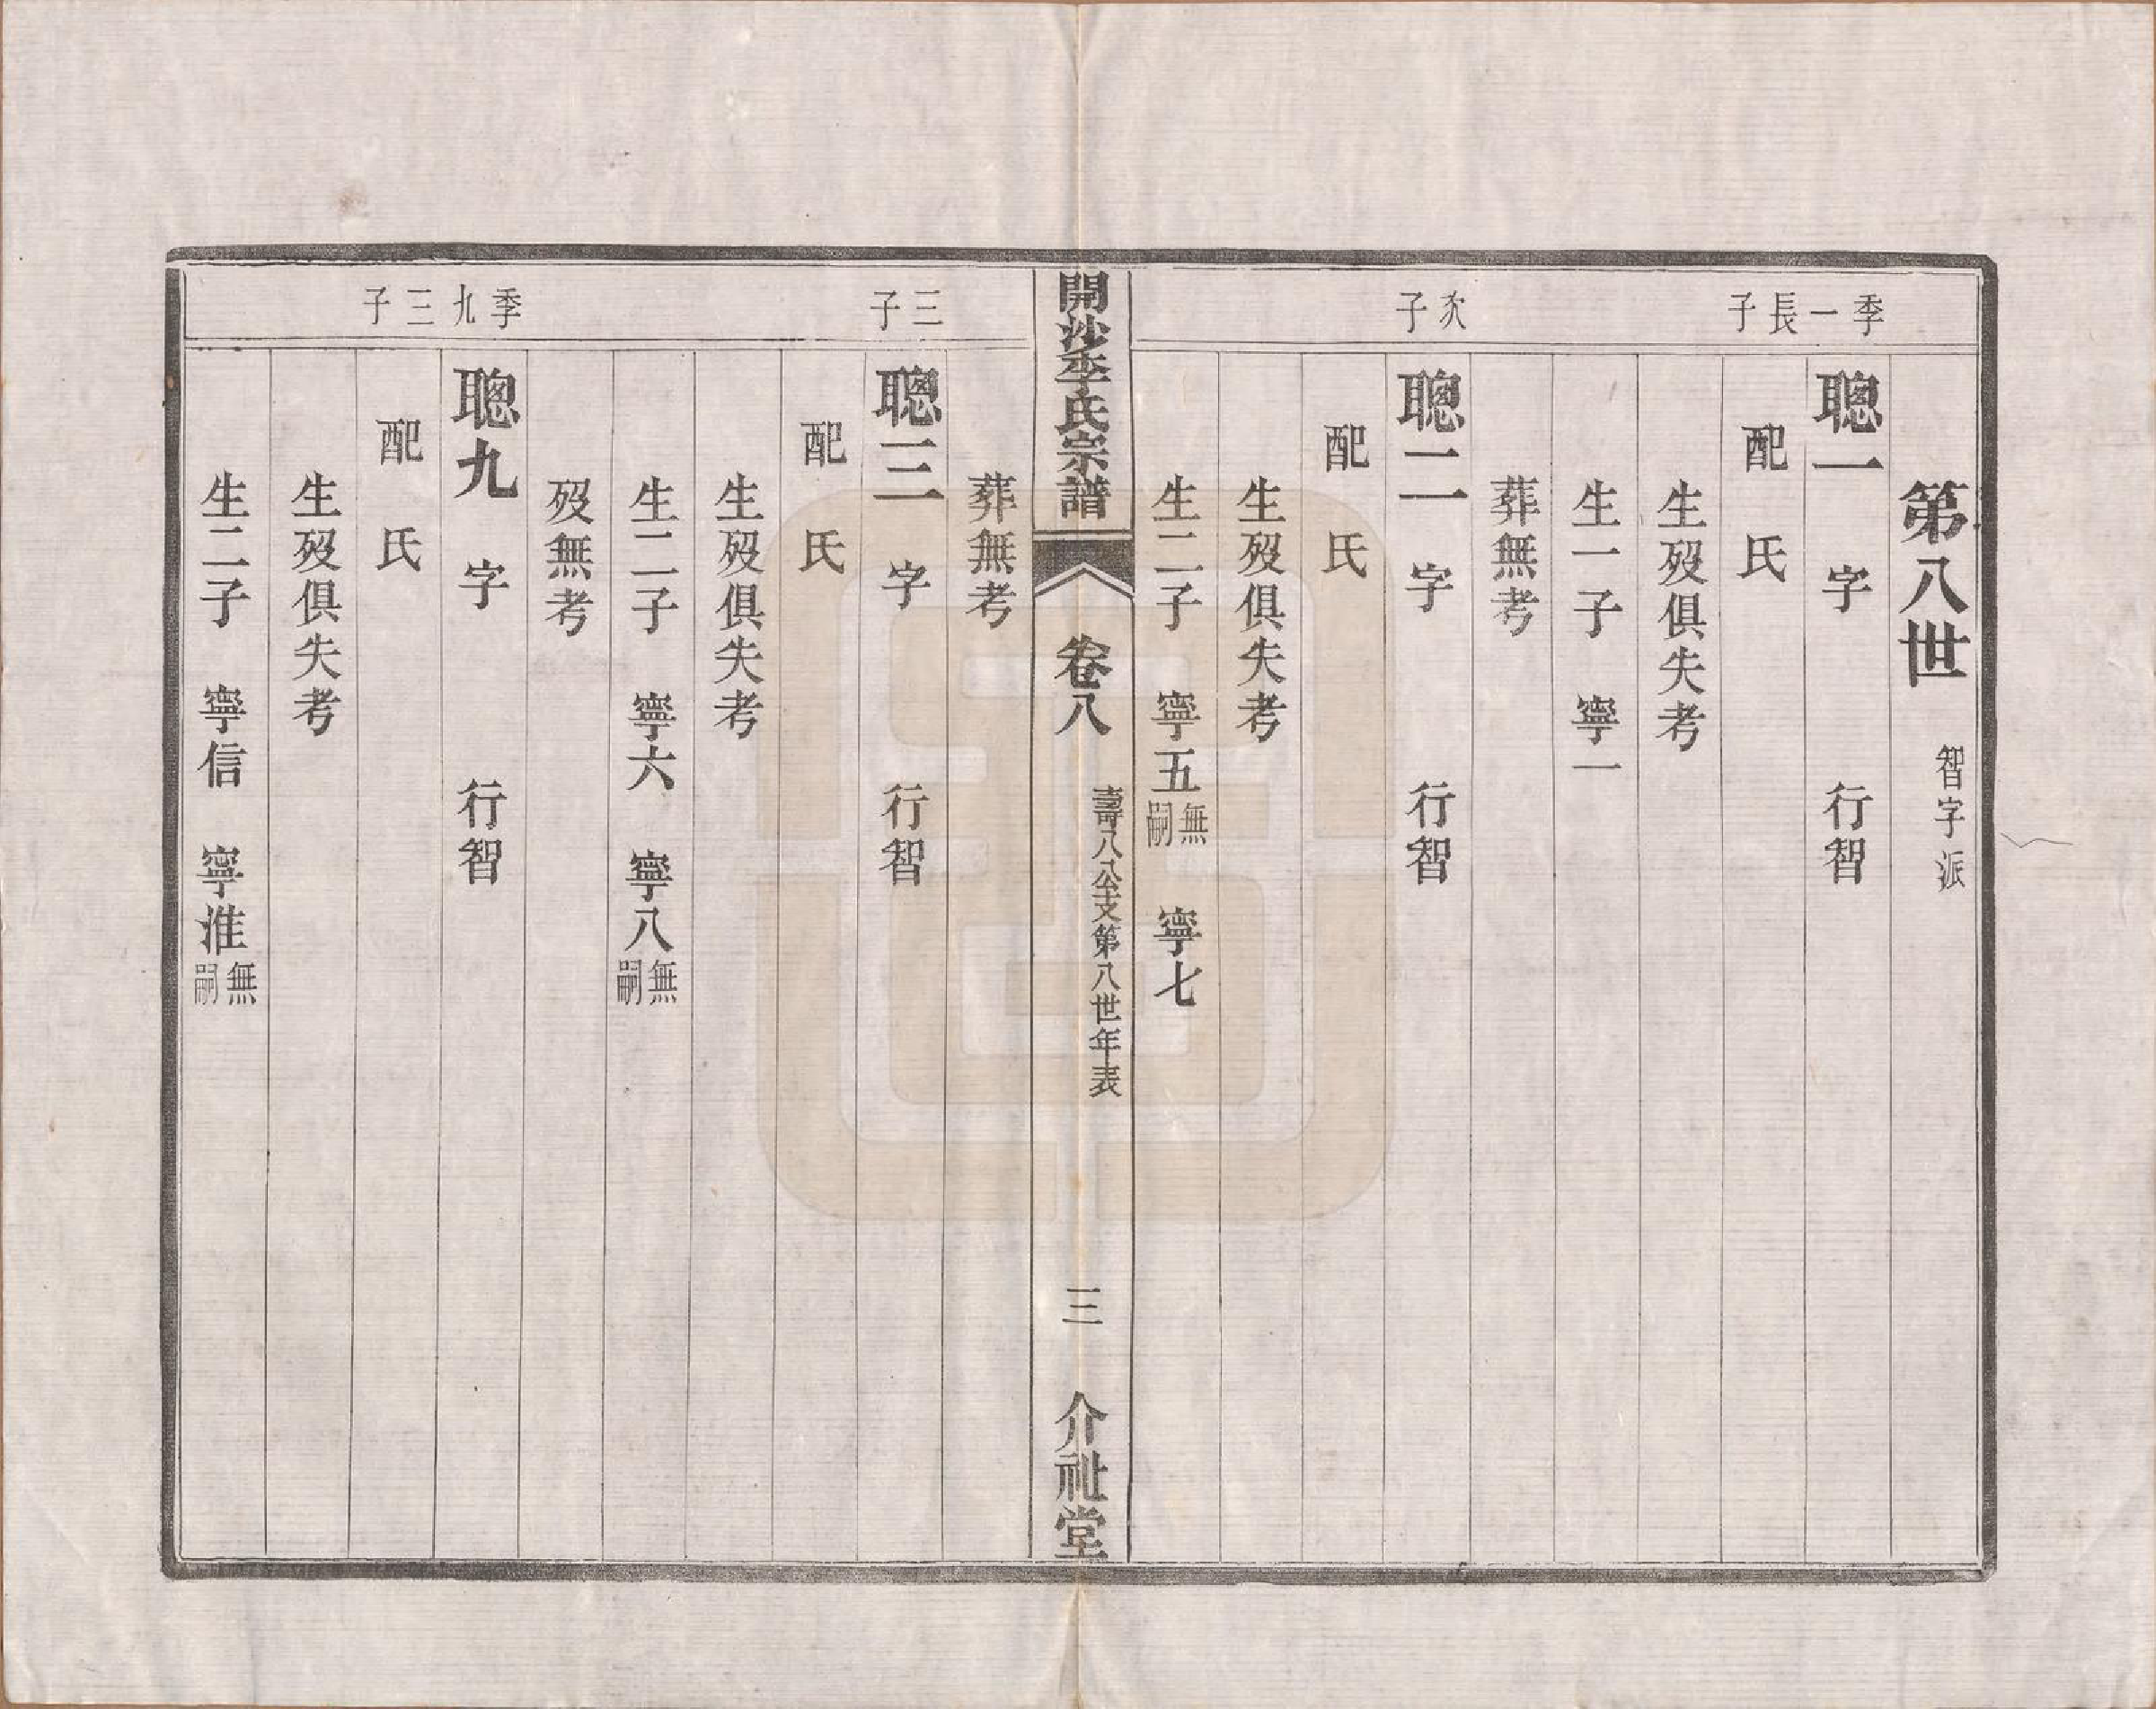 第八世 智字派
季一長子
聰一 字 行智
配 氏
生歿俱失考
生一子 寧一
葬無考
次子
聰二 字 行智
配 氏
生歿俱失考
生二子 寧五無嗣 寧七
開沙李氏宗譜 卷八 壽八公支第八世年表 三 介祉堂
葬無考
三子
聰三 字 行智
配 氏
生歿俱失考
生二子 寧六 寧八無嗣
歿無考
季九三子
聰九 字 行智
配 氏
生歿俱失考
生二子 寧信 寧淮無嗣